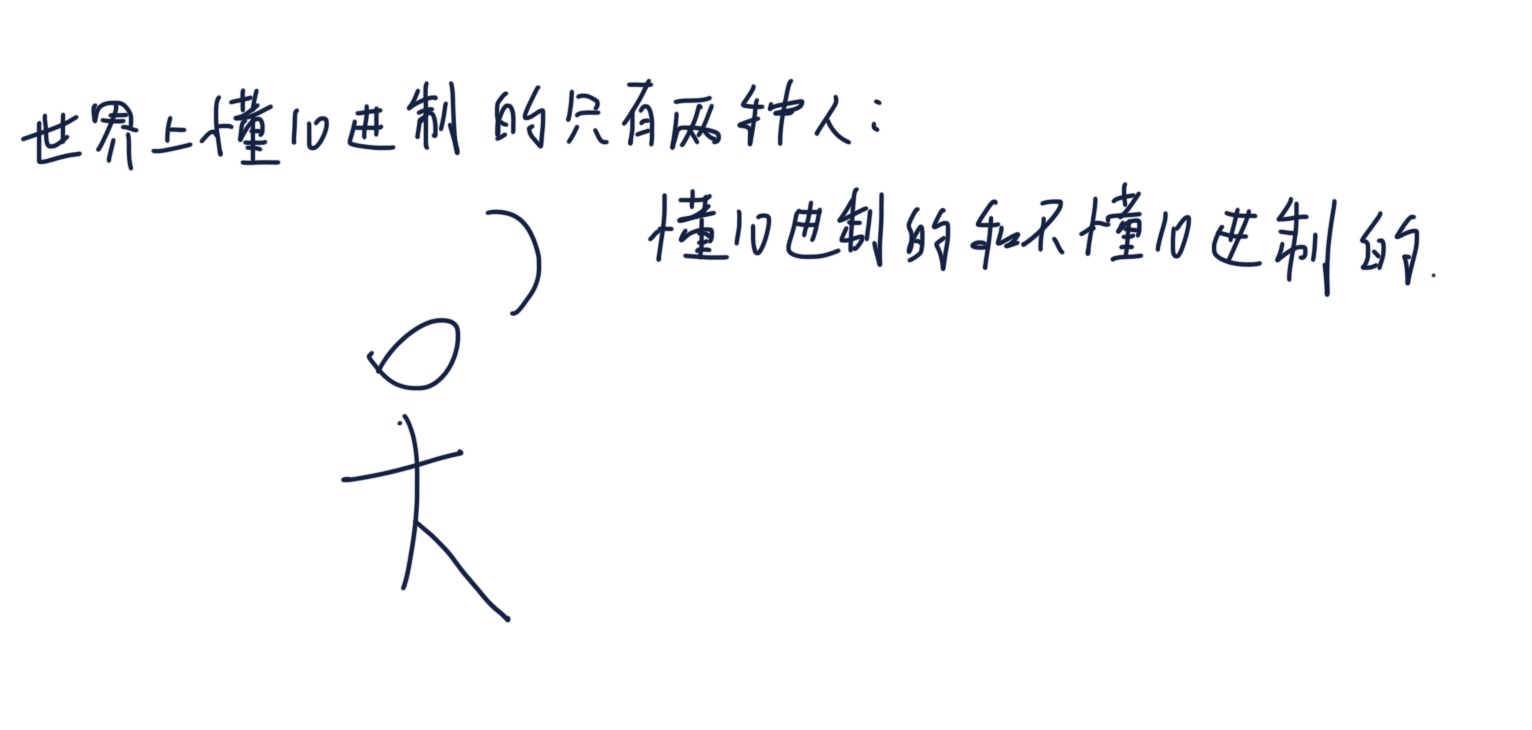 世界上懂10进制的只有两种人：
懂10进制的和不懂10进制的.